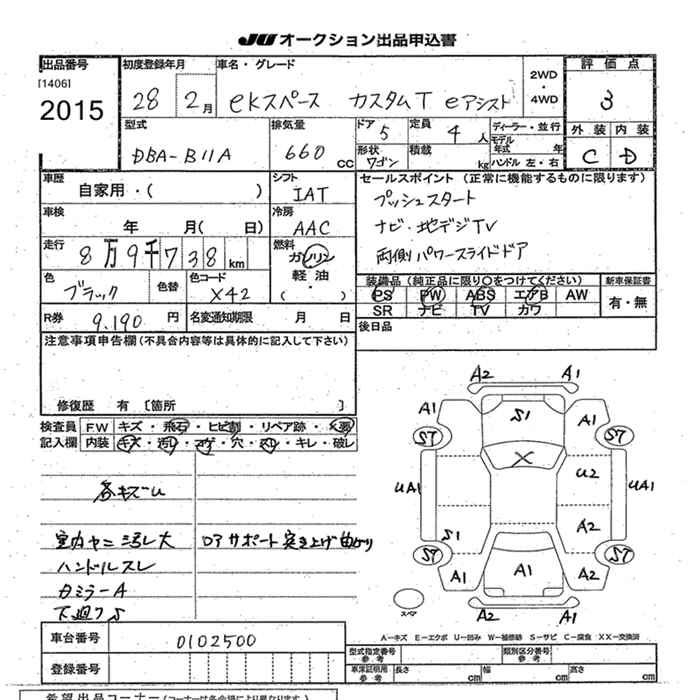 JU オークション出品申込書
出品番号 初度登録年月 車名・グレード 2WD・4WD 評価点
[1406]
2015 28 2月 eKスペース カスタムT eアシスト 3
型式 排気量 ドア 5 定員 4人 ディーラー・並行 外装 内装
モデル年式 年
DBA-B11A 660 CC 形状 ワゴン 積載 kg ハンドル 左・右 C D
車歴 シフト セールスポイント (正常に機能するものに限ります)
自家用・( ) IAT プッシュスタート
車検 冷房 ナビ・地デジTV
年 月( 日) AAC
走行 燃料 両側パワースライドドア
8万9千738km ガソリン
軽油
( )
色 色替 色コード 装備品 (純正品に限り○をつけてください) 新車保証書
ブラック X42 PS PW ABS エアB AW 有・無
SR ナビ TV カワ
R券 9.190 円 名変通知期限 月 日 後日品
注意事項申告欄 (不具合内容等は具体的に記入して下さい)
修復歴 有 〔箇所 〕
検査員 F.W キズ・飛石・ヒビ割・リペア跡・X要
記入欄 内装 キズ・汚レ・コゲ・穴・スレ・キレ・破レ
各キズU
室内ヤニ汚レ大 Dアサポート突き上げ曲がり
ハンドルスレ
ミラーA
下廻りS
A2 A1
A1 S1 A1
ST ST
X
U2
UA1 UA1
S1 A2
ST ST
A1 A1 A2
スペア
A2 A1
A－キズ E－エクボ U－凹み W－補修跡 S－サビ C－腐食 XX－交換済
車台番号 0102500
型式指定番号 参考 類別区分番号 参考
登録番号 車庫証明用 参考 長さ cm 幅 cm 高さ cm
希望出品コーナー